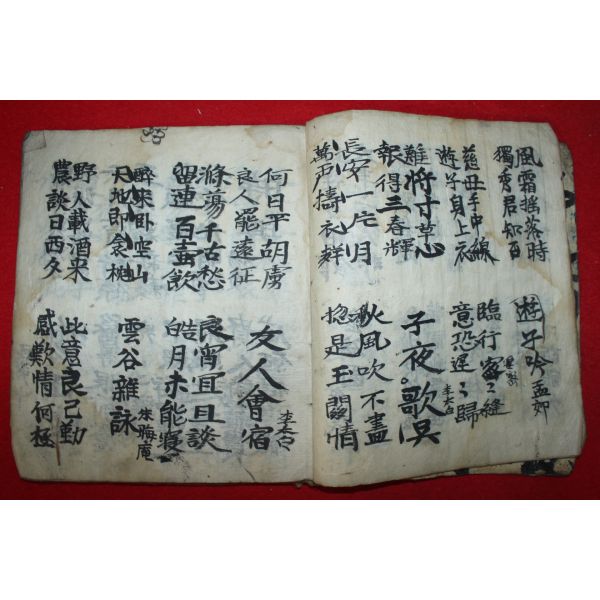 風霜搖落時
獨秀君知否
遊子吟 孟郊
慈母手中線
遊子身上衣
臨行密〻縫
意恐遲〻歸
難將寸草心
報得三春輝
子夜歌吳 李太白
長安一片月
萬戶擣衣聲
秋風吹不盡
摠是玉關情
何日平胡虜
良人罷遠征
友人會宿 李太白
滌蕩千古愁
留連百壺飲
良宵宜且談
皓月未能寢
醉來卧空山
天地即衾枕
雲谷雜詠 朱晦庵
野人載酒來
農談日西夕
此意良已勤
感歎情何極